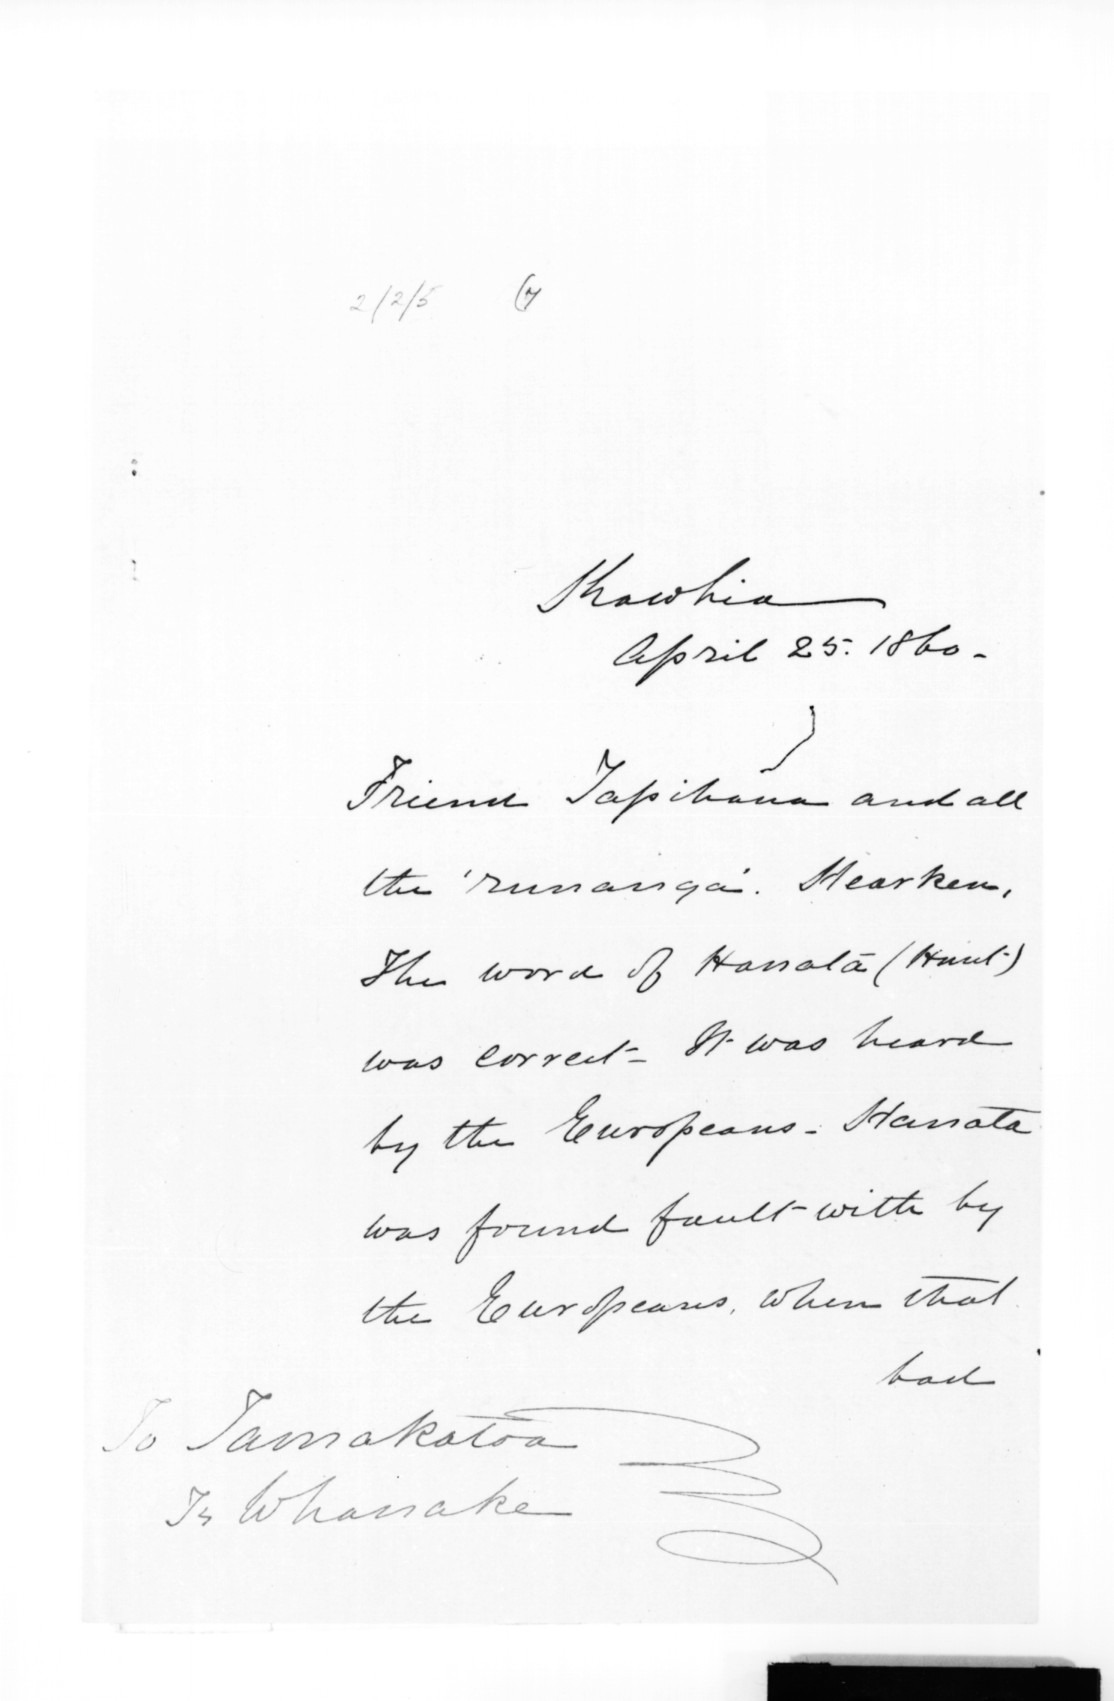 2/2/5 (7
Kawhia
April 25. 1860.
Friend Tapihana and all
the 'runanga'. Hearken,
The word of Hanatā (Hunt)
was correct - It was heard
by the Europeans - Hanata
was found fault with by
the Europeans, when that
bad
To Tamakatoa
To Whanake